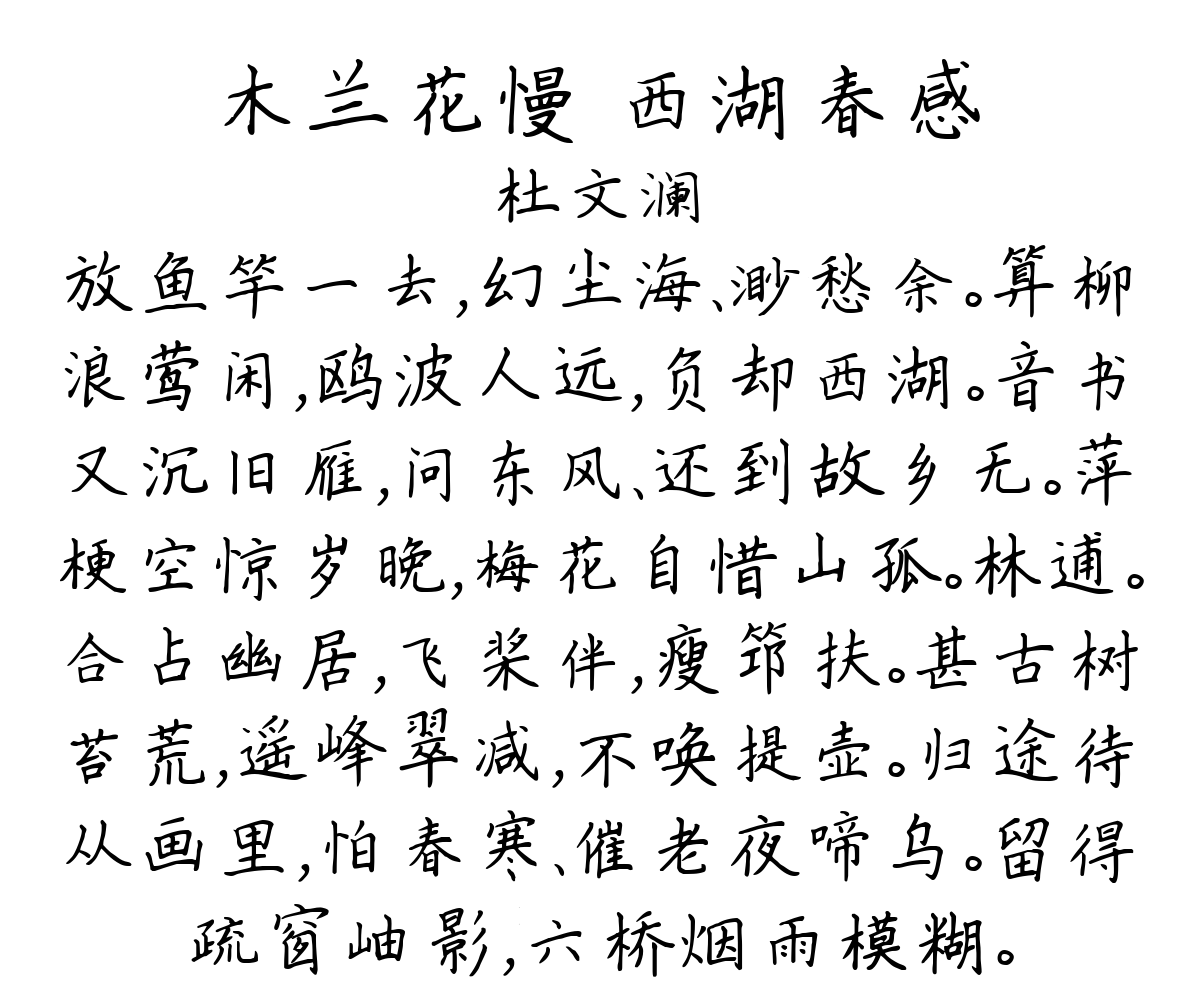 木兰花慢 西湖春感
杜文澜
放鱼竿一去,幻尘海、渺愁余。算柳
浪莺闲,鸥波人远,负却西湖。音书
又沉旧雁,问东风、还到故乡无。萍
梗空惊岁晚,梅花自惜山孤。林逋。
合占幽居,飞桨伴,瘦筇扶。甚古树
苔荒,遥峰翠减,不唤提壶。归途待
从画里,怕春寒、催老夜啼乌。留得
疏窗岫影,六桥烟雨模糊。